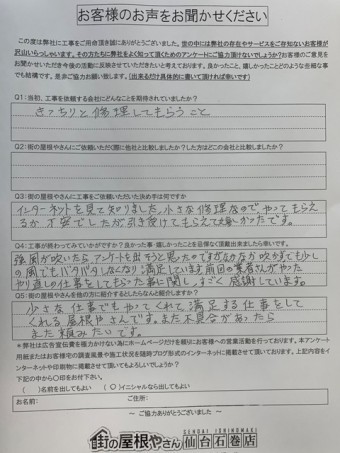 お客様のお声をお聞かせください
この度は弊社に工事をご用命頂き誠にありがとうございました。世の中には弊社の存在やサービスをご存知ないお客様が
沢山いらっしゃいます。その方たちに弊社をよく知って頂くためのアンケートにご協力頂けないでしょうか?お客様のご意見を
お聞かせいただき今後の活動に反映させていただきたいと考えております。良かったこと、嬉しかったことどのような些細な事
でも結構です。是非ご協力お願い致します。(出来るだけ具体的に書いて頂ければ幸いです)
Q1:当初、工事を依頼する会社にどんなことを期待されていましたか?
きっちりと修理してもらうこと
Q2:街の屋根やさんにご依頼いただく際に他社と比較しましたか?した方はどこの会社と比較しましたか?
Q3:街の屋根やさんに工事をご依頼いただいた決め手は何ですか
インターネットを見て知りました。小さな修理なので、やってもらえ
るか不安でしたが引き受けてもらえて嬉しかったです。
Q4:工事が終わってみていかがですか?良かった事・嬉しかったことを忌憚なく頂戴出来ましたら幸いです。
強風が吹いたらアンケートを出そうと思ったのですがなかなか吹かずでも少し
の風でもバタバタしなくなり満足しています。前回の業者さんがやった
やり直しの仕事をしてもらった事に関し、すごく感謝しています。
Q5:街の屋根やさんを他の方に紹介するとしたらなんと紹介しますか?
小さな仕事でもやってくれて満足する仕事をして
くれる屋根やさんです。また不具合があったら
また頼みたいです。
*弊社は広告宣伝費を極力かけない為にホームページだけを頼りにお客様への営業活動を行っております。本アンケート
用紙またはお客様宅の調査風景や施工状況を随時ブログ形式のインターネットに掲載させて頂いております。上記内容をイ
ンターネットや印刷物に掲載させて頂いてもよろしいでしょうか?
下記の中から〇印をお付下さい。
( )名前を出してもよい (〇)イニシャルなら出してもよい
お名前: ご住所:
~ ご協力ありがとうございました ~
SENDAI ISHINOMAKI
街の屋根やさん 仙台石巻店